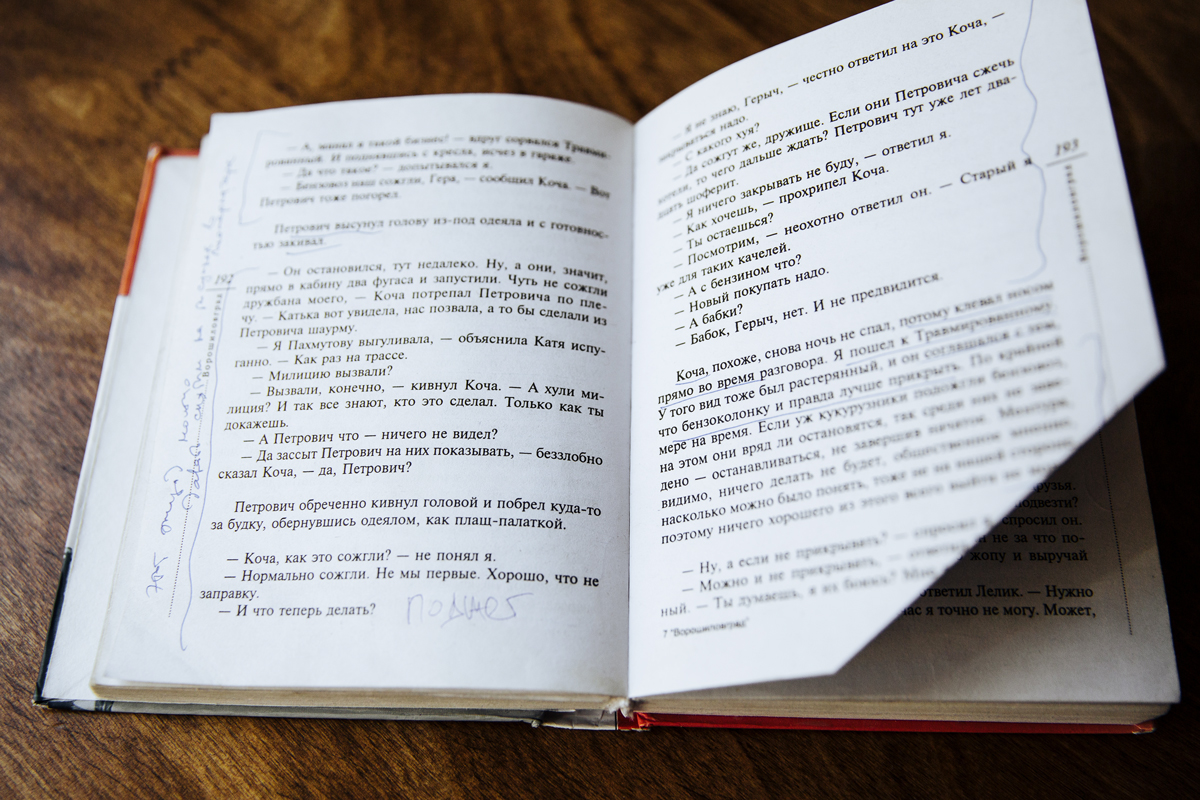 — А, жопа а такой бизнес! — вдруг сорвался Травми-
рованный. И поднявшись с кресла, исчез в гараже.
— Да что такое? — допытывался я.
— Бензовоз наш сожгли, Гера, — сообщил Коча. — Вот
Петрович тоже погорел.
Петрович высунул голову из-под одеяла и с готовнос-
тью закивал.
— Он остановился, тут недалеко. Ну, а они, значит,
прямо в кабину два фугаса и запустили. Чуть не сожгли
дружбана моего, — Коча потрепал Петровича по пле-
чу. — Катька вот увидела, нас позвала, а то бы сделали из
Петровича шаурму.
— Я Пахмутову выгуливала, — объяснила Катя испу-
ганно. — Как раз на трассе.
— Милицию вызвали?
— Вызвали, конечно, — кивнул Коча. — А хули ми-
лиция? И так все знают, кто это сделал. Только как ты
докажешь.
— А Петрович что — ничего не видел?
— Да зассыт Петрович на них показывать, — беззлобно
сказал Коча, — да, Петрович?
Петрович обреченно кивнул головой и побрел куда-то
за будку, обернувшись одеялом, как плащ-палаткой.
— Коча, как это сожгли? — не понял я.
— Нормально сожгли. Не мы первые. Хорошо, что не
заправку.
— И что теперь делать?
поджег
192
Ворошиловград
— Я не знаю, Герыч, — честно ответил на это Коча, —
закрываться надо.
— С какого хуя?
— Да сожгут же, дружище. Если они Петровича сжечь
хотели, то чего дальше ждать? Петрович тут уже лет два-
дцать шоферит.
— Я ничего закрывать не буду, — ответил я.
— Как хочешь, — прохрипел Коча.
— Ты остаешься?
— Посмотрим, — неохотно ответил он. — Старый я
уже для таких качелей.
— А с бензином что?
— Новый покупать надо.
— А бабки?
— Бабок, Герыч, нет. И не предвидится.
Коча, похоже, снова ночь не спал, потому клевал носом
прямо во время разговора. Я пошел к Травмированному.
У того вид тоже был растерянный, и он соглашался с тем,
что бензоколонку и правда лучше прикрыть. По крайней
мере на время. Если уж кукурузники подожгли бензовоз,
на этом они вряд ли остановятся, так среди них не заве-
дено — останавливаться, не завершив начатое. Ментура,
видимо, ничего делать не будет, общественное мнение,
насколько можно было понять, тоже не на нашей стороне,
поэтому ничего хорошего из этого всего выйти не мог
— Ну, а если не прикрывать? — спросил
— Можно и не прикрывать, — ответил
ный. — Ты думаешь, я их боюсь?
7 "Ворошиловград"
193
Ворошиловград
друзья.
подвезти?
спросил он.
и не за что по-
жопу и выручай
ответил Лелик. — Нужно
час я точно не могу. Может,